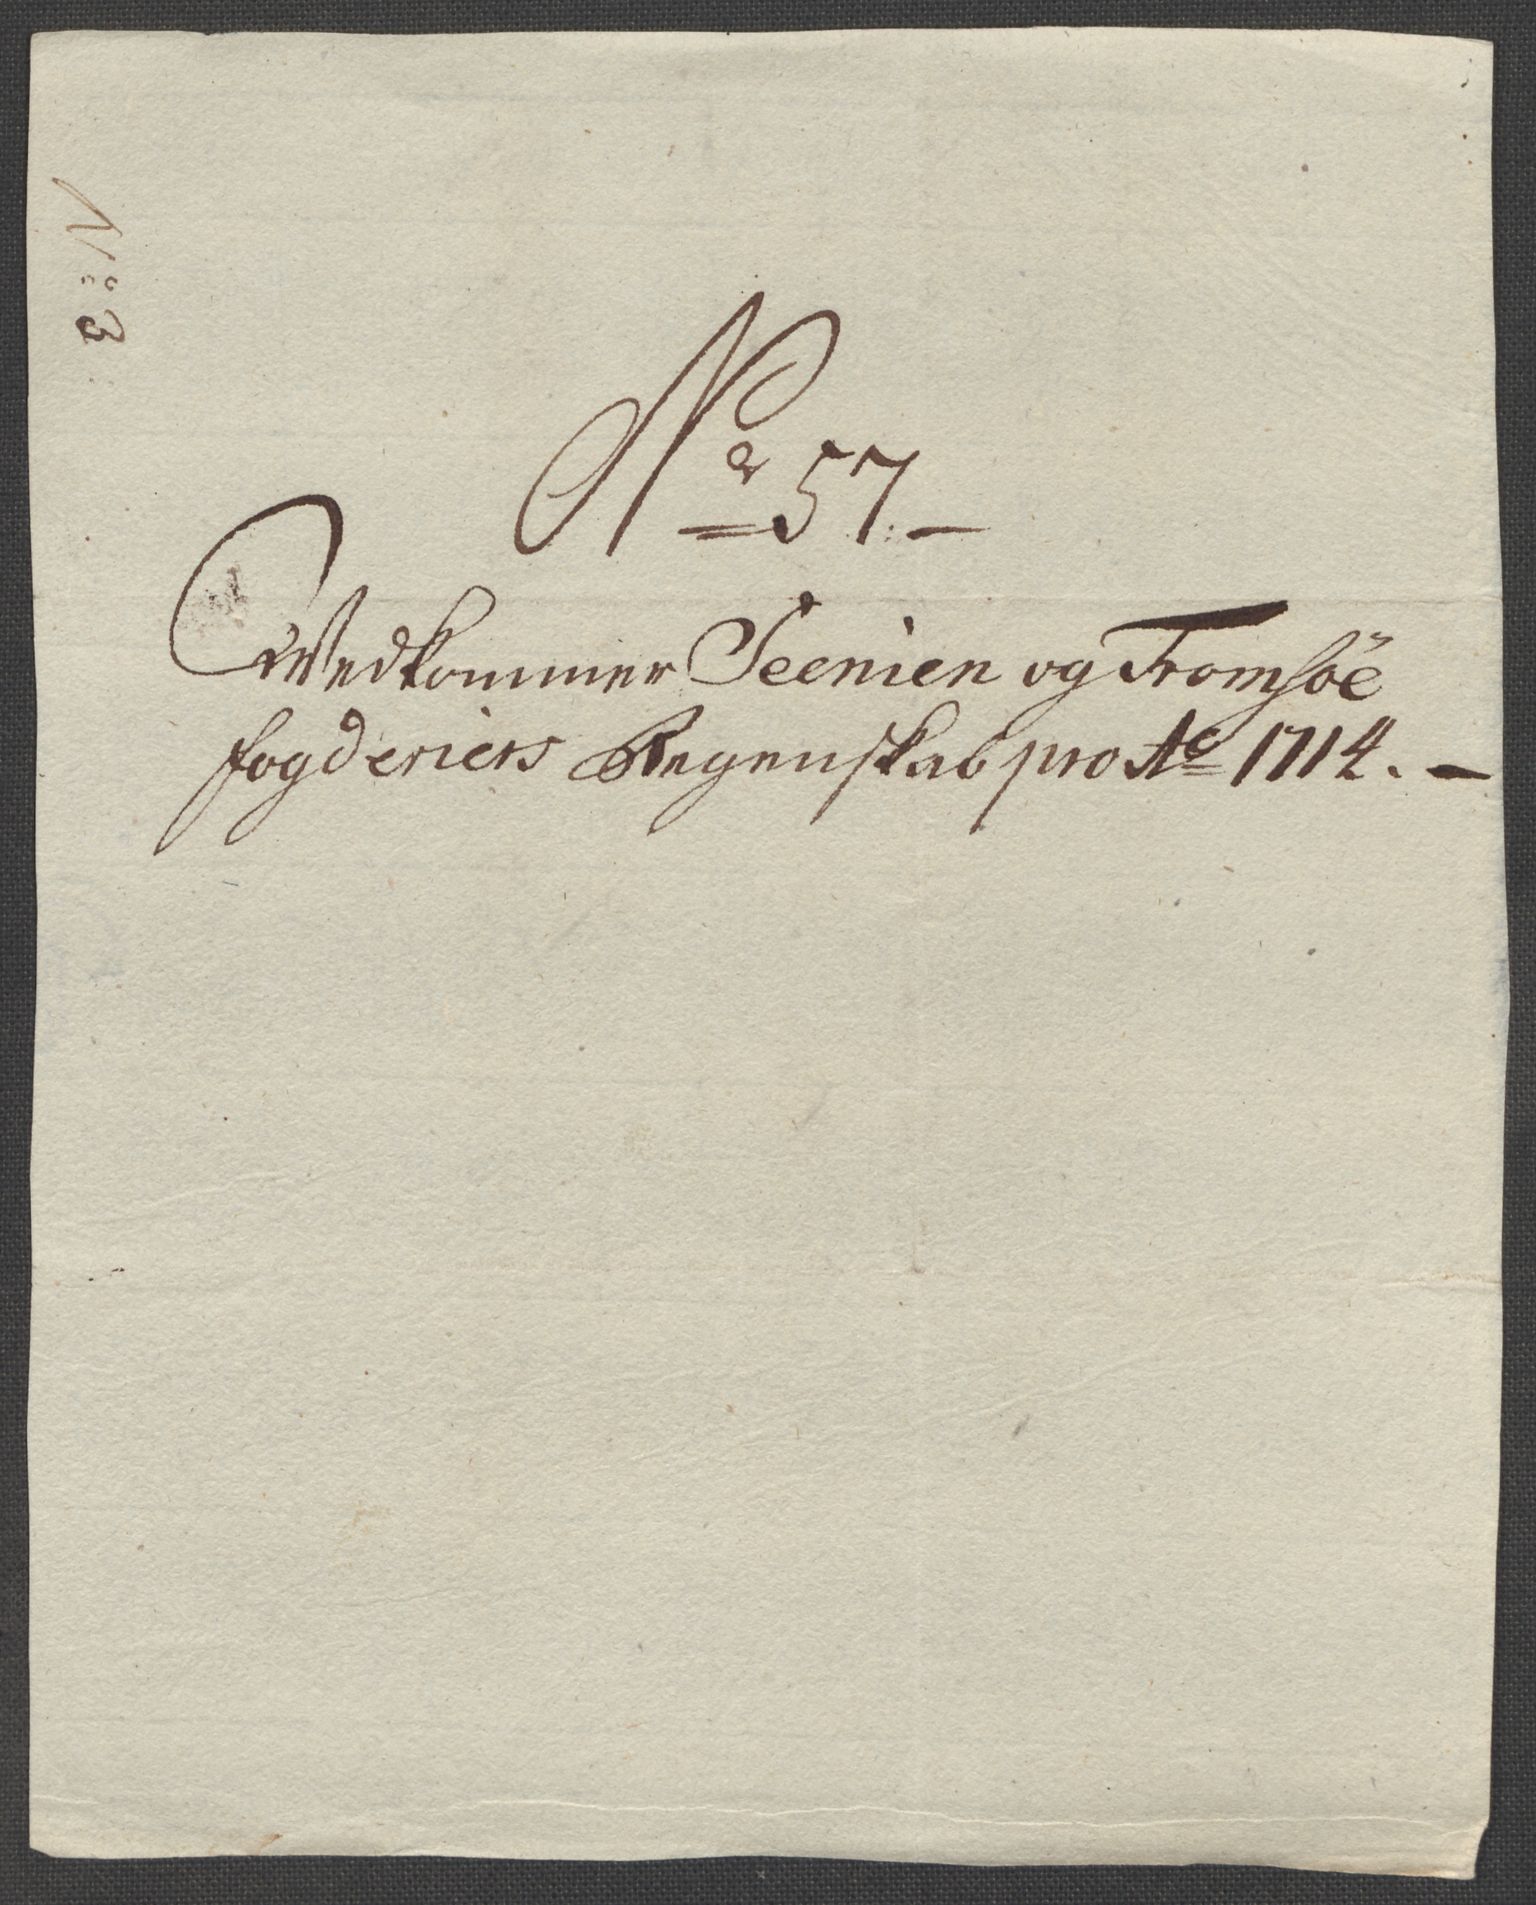 No: 3
No 57.-
Vedkommer Seenien og Tromsöe
fogderiers Regenskab pro Ao 1714. -